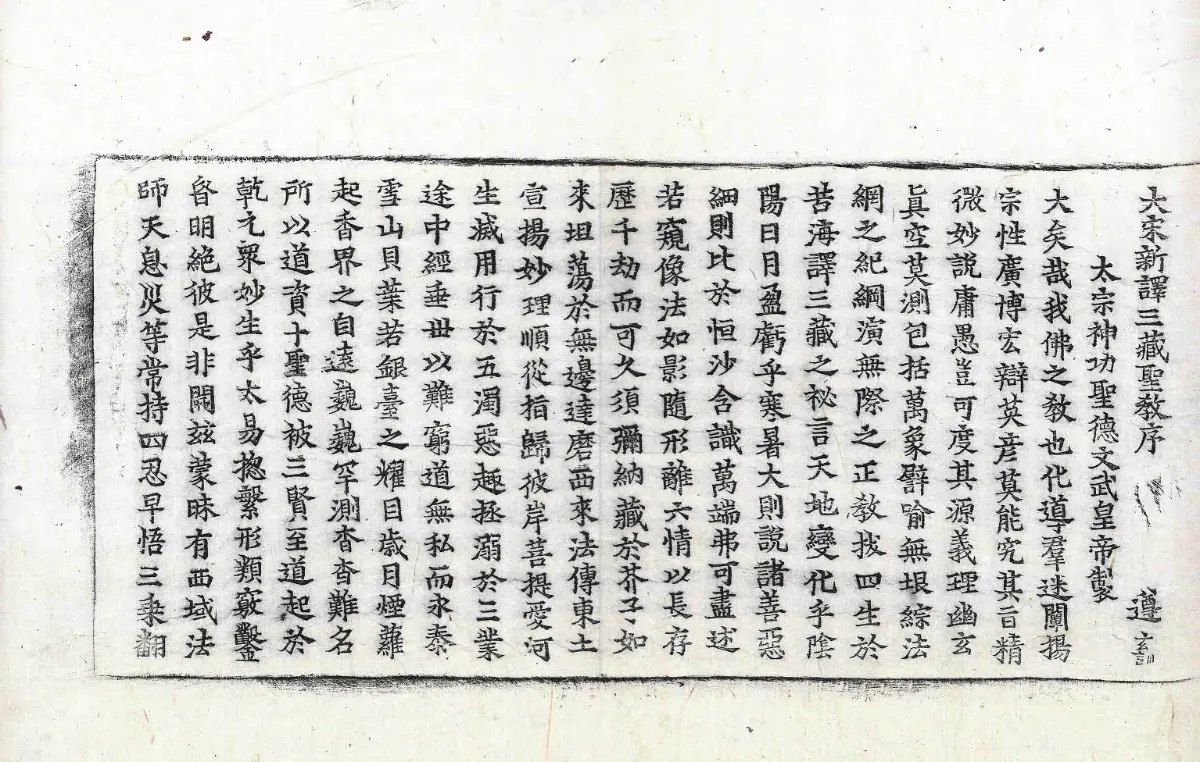 大宋新譯三藏聖教序 遵
太宗神功聖德文武皇帝製
大矣哉我佛之教也化導羣迷闡揚
宗性廣博宏辯英彦莫能究其旨精
微妙說庸愚豈可度其源義理幽玄
真空莫測包括萬象譬喻無垠綜法
網之紀綱演無際之正教拔四生於
苦海譯三藏之祕言天地變化乎陰
陽日月盈虧乎寒暑大則說諸善惡
細則比於恒沙含識萬端弗可盡述
若窺像法如影隨形離六情以長存
歷千劫而可久須彌納藏於芥子如
來坦蕩於無邊達磨西來法傳東土
宣揚妙理順從指歸彼岸菩提愛河
生滅用行於五濁惡趣拯溺於三業
途中經垂世以難窮道無私而永泰
雪山貝葉若銀臺之耀目歲月煙蘿
起香界之自遠巍巍罕測杳杳難名
所以道資十聖德被三賢至道起於
乾元眾妙生乎太易揔繫形類竅鑿
昏明絕彼是非開茲蒙昧有西域法
師天息災等常持四忍早悟三乘翻